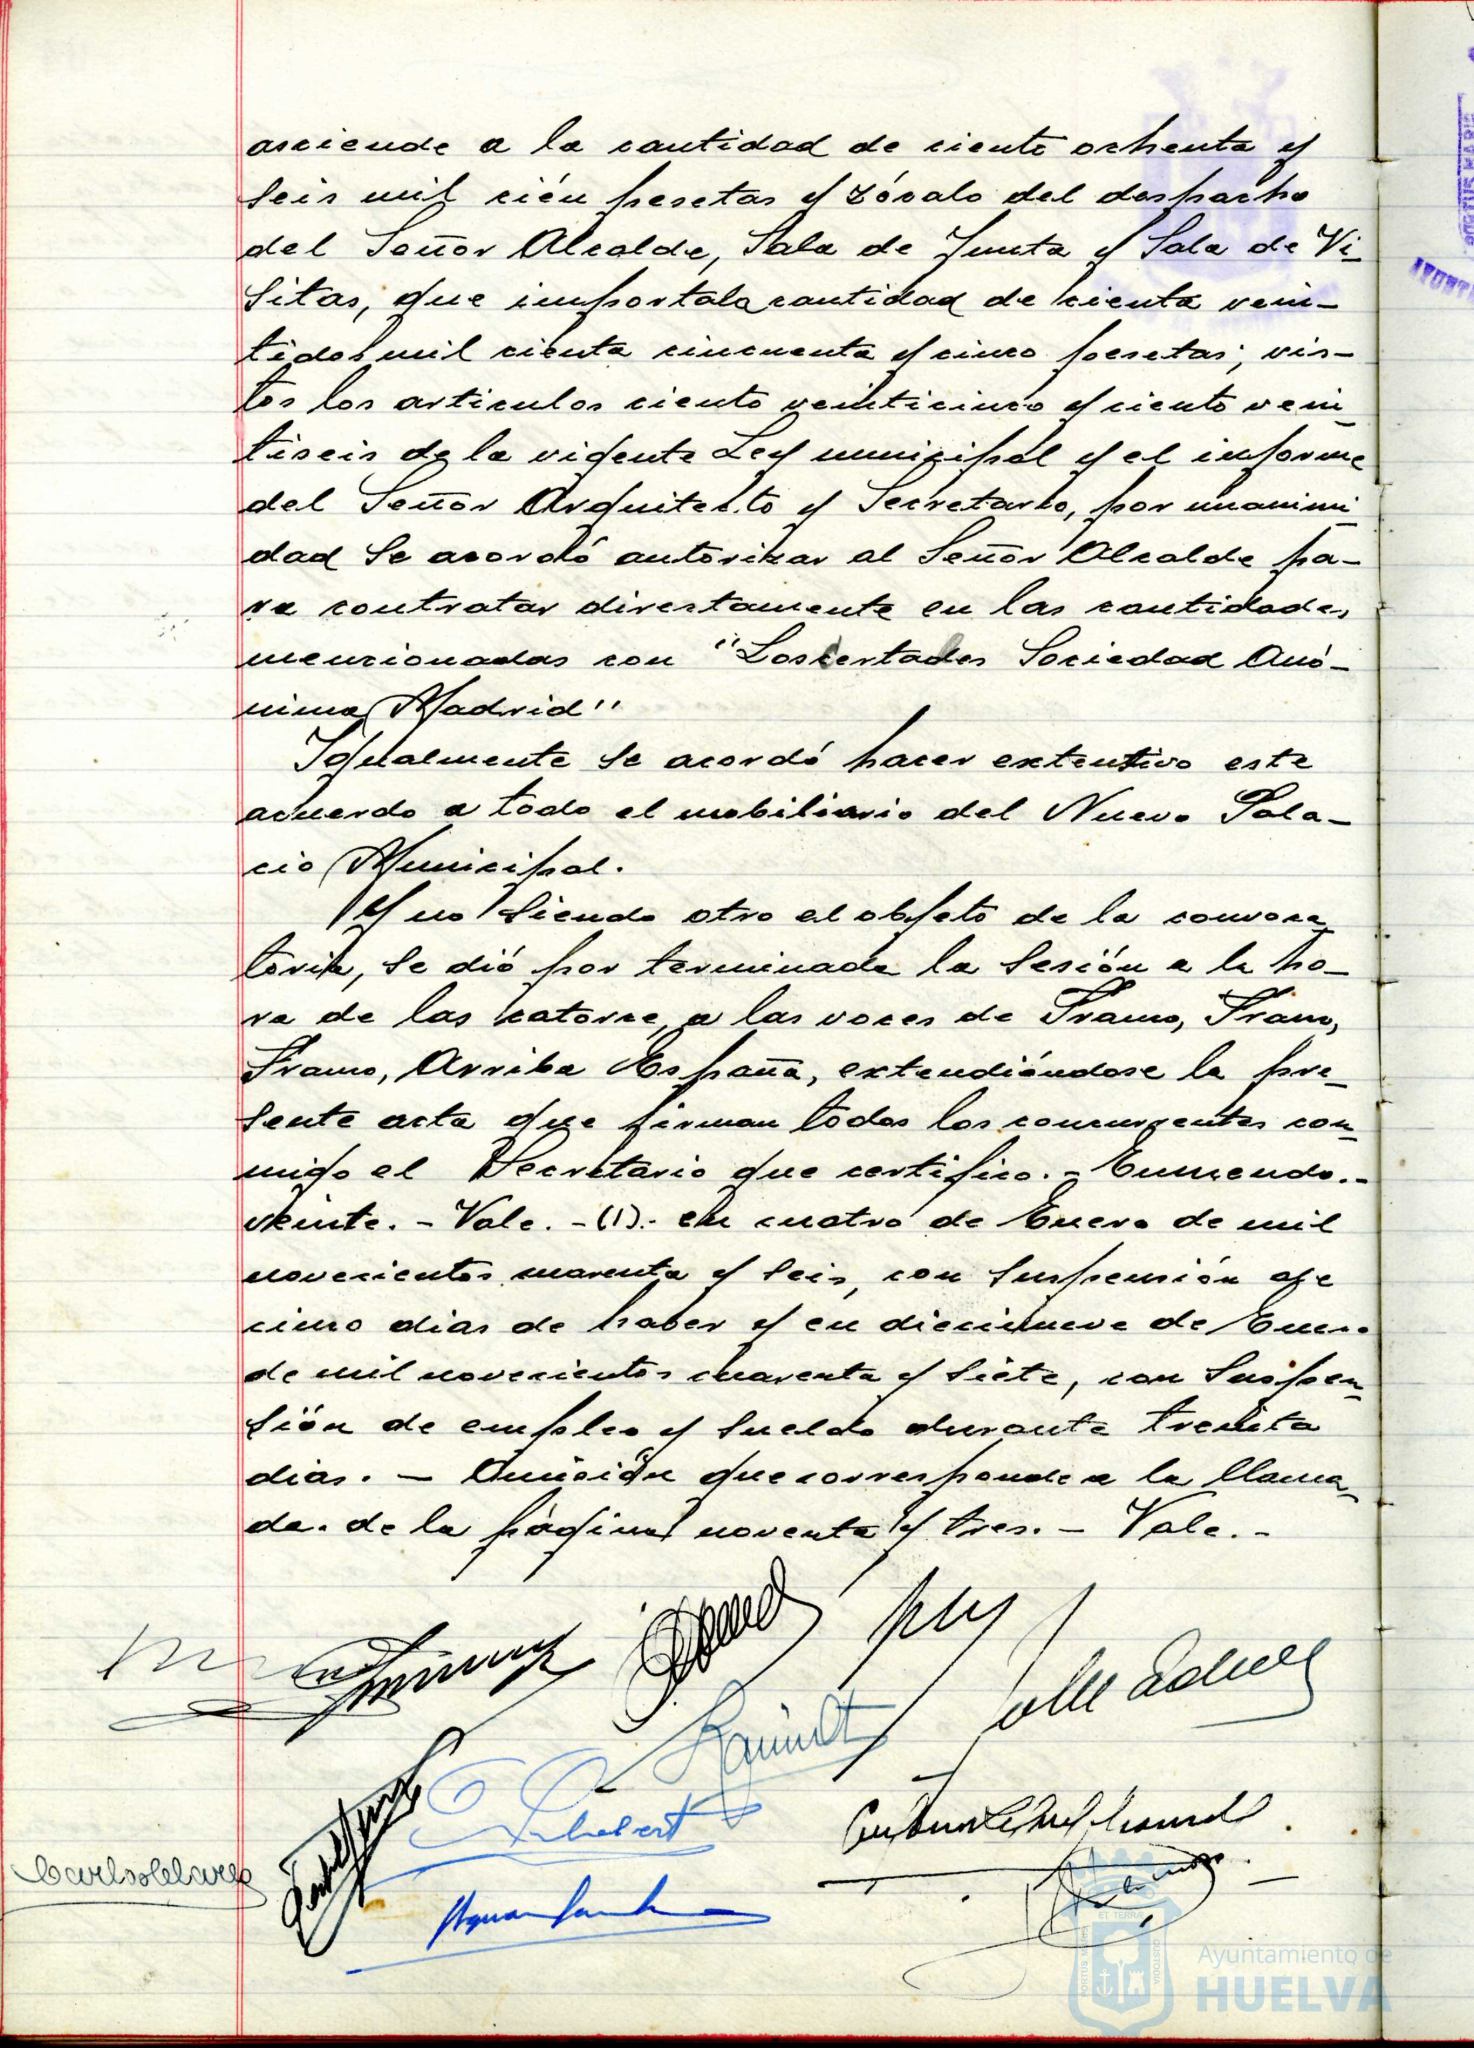 asciende a la cantidad de ciento ochenta y
seis mil cién pesetas y zócalo del despacho
del Señor Alcalde, Sala de Junta y Sala de Vi-
sitas, que importa la cantidad de ciento vein-
tidos mil ciento cincuenta y cinco pesetas; vis-
tos los articulos ciento veinticinco y ciento vein-
tiseis de la vigente Ley municipal y el informe
del Señor Arquitecto y Secretario, por unanimi-
dad se acordó autorizar al Señor Alcalde pa-
ra contratar directamente en las cantidades
mencionadas con "Loscertales Sociedad Anó-
nima Madrid"
Igualmente se acordó hacer extentivo este
acuerdo a todo el mobiliario del Nuevo Pala-
cio Municipal.
Y no siendo otro el objeto de la convoca-
toria, se dió por terminada la sesión a la ho-
ra de las catorce, a las voces de Franco, Franco,
Franco, Arriba España, extendiéndose la pre-
sente acta que firman todos los concurrentes con-
migo el Secretario que certifico. - Enmendo. -
veinte. - Vale. - (1). - en cuatro de Enero de mil
novecientos cuarenta y seis, con suspensión de
cinco dias de haber y en diecinueve de Enero
de mil novecientos cuarenta y siete, con suspen-
sión de empleo y sueldo durante treinta
dias. - Omición que corresponde a la llama-
da. de la página noventa y tres. - Vale. -
ET TERRAE
PORTUS MARIS
CUSTODIA
Ayuntamiento de
HUELVA